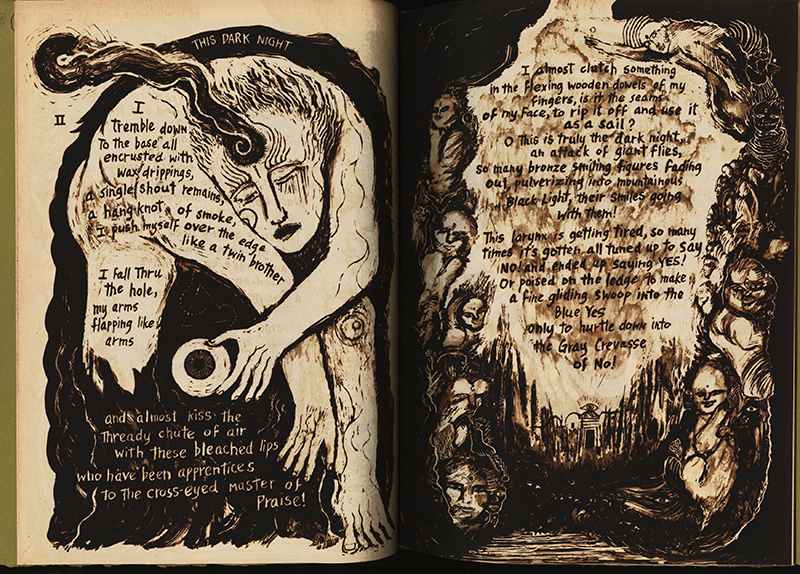 THIS DARK NIGHT
II
I
Tremble down
To the base all
encrusted with
wax drippings,
a single shout remains,
a hang-knot of smoke,
I push myself over the edge
like a twin brother
I fall Thru
the hole,
my arms
flapping like
arms
and almost kiss the
Thready chute of air
with these bleached lips
who have been apprentices
to the cross-eyed master of
Praise!
I almost clutch something
in the flexing wooden dowels of my
fingers, is it the seams
of my face, to rip it off and use it
as a sail?
O This is truly the dark night,
an attack of giant flies,
so many bronze smiling figures fading
out, pulverizing into mountainous
Black Light, their smiles going
with them!
This larynx is getting tired, so many
times it's gotten all tuned up to say
NO! and ended up saying YES!
Or poised on the ledge to make
a fine gliding swoop into the
Blue Yes
only to hurtle down into
the Gray Crevasse
of No!